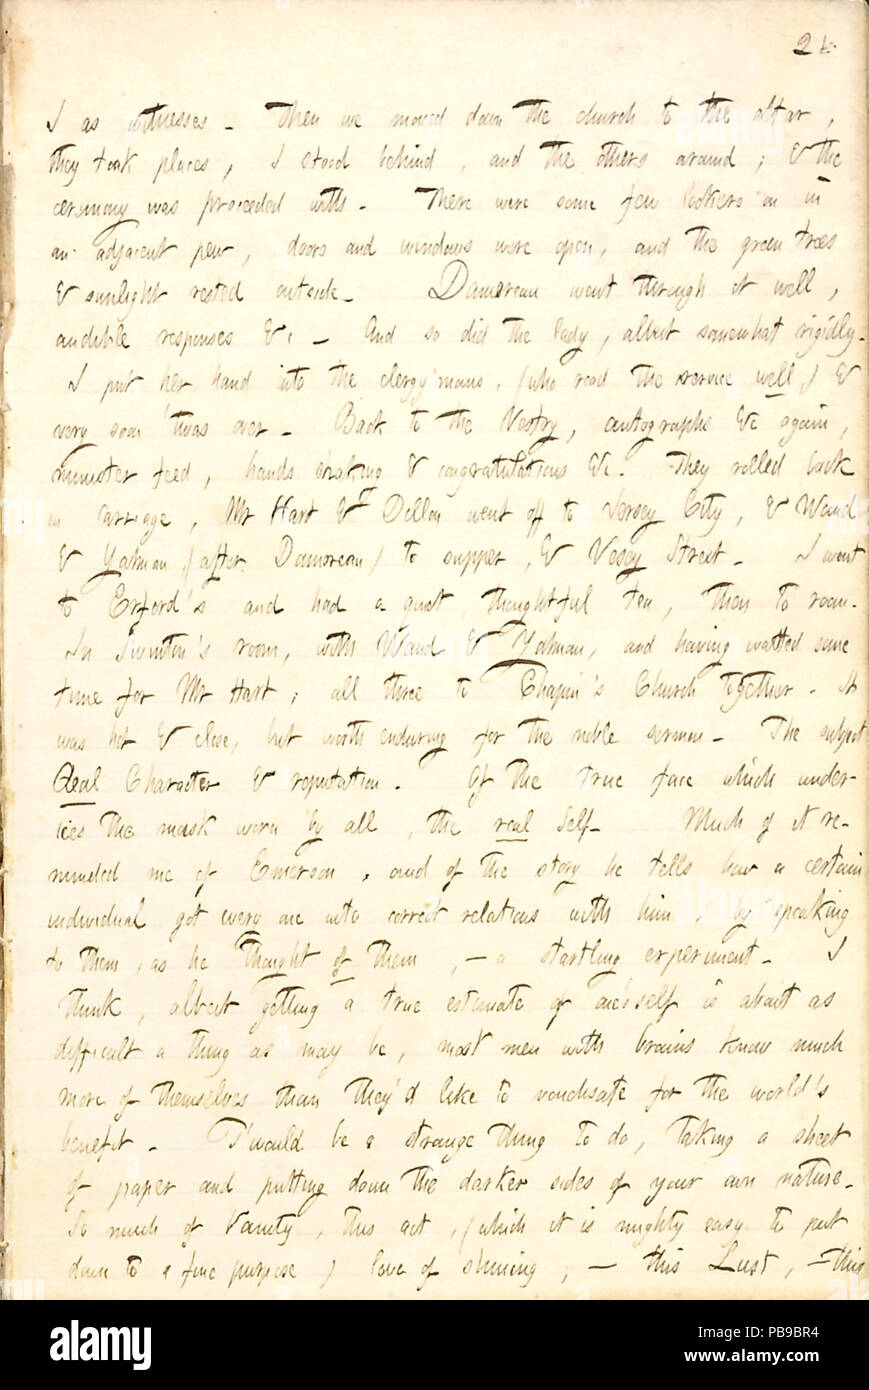 2
I as witnesses. Then we moved down the church to the altar,
they took places, I stood behind, and the others around; & the
ceremony was proceeded with. There were some few lookers on in
an adjacent pew, doors and windows were open, and the green trees
& sunlight rested outside. Damoreau went through it well,
audible responses &c. And so did the lady, albeit somewhat rigidly.
I put her hand into the clergyman's, (who read the service well,) &
very soon 'twas over. Back to the Vestry, autographs &c again,
minister feed, hands shaking & congratulations &c. They rolled back
in carriage, Mr Hart & Dillon went off to Jersey City, & Waud
& Yalman (after Damoreau) to supper, & Vesey Street. I went
to Erford's and had a quiet, thoughtful tea, then to room.
In Swinton's room, with Waud & Yalman, and having waited some
time for Mr Hart; all three to Chapin's Church together. It
was hot & close, but worth enduring for the noble sermon. The subject
Real Character & reputation. Of the true face which under-
lies the mask worn by all, the real Self. Much of it re-
minded me of Emerson, and of the story he tells how a certain
individual got every one into correct relations with him, by speaking
to them, as he thought of them, — a startling experiment. I
think, albeit getting a true estimate of one'self is about as
difficult a thing as may be, most men with brains know much
more of themselves than they'd like to vouchsafe for the world's
benefit. T'would be a strange thing to do, taking a sheet
of paper and putting down the darker sides of your own nature.
So much of Vanity, this act, (which it is mighty easy to put
down to a fine purpose) love of shining; — this Lust, — this
alamy
Image ID: PB9BR4
www.alamy.com